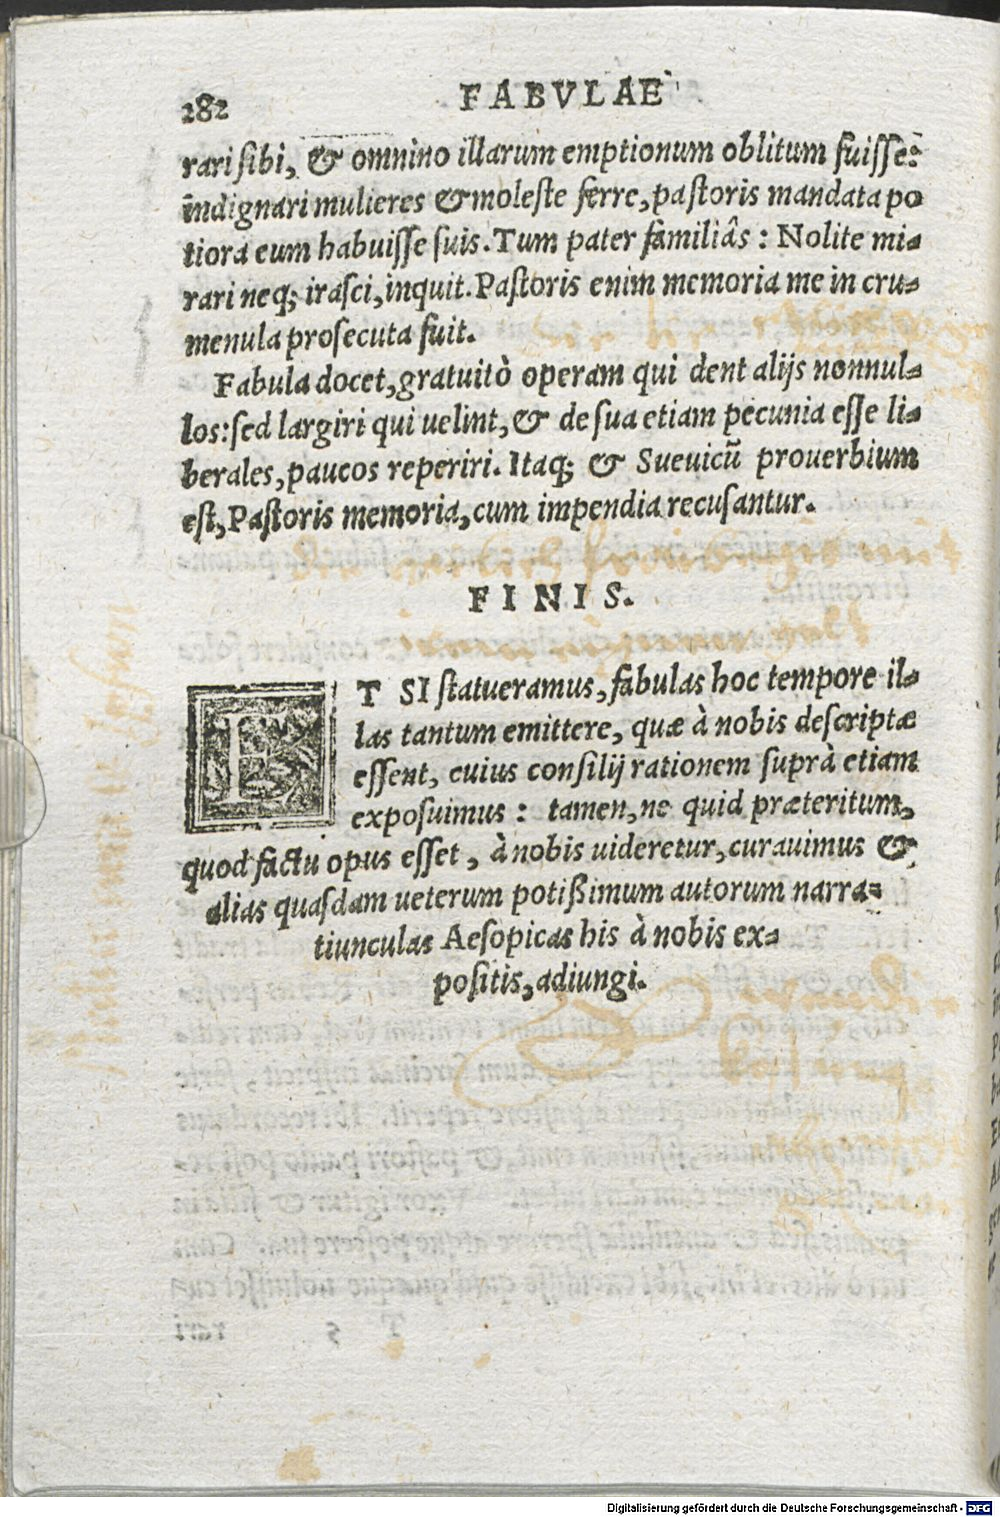 282
FABVLAE
rari sibi, & omnino illarum emptionum oblitum fuisse:
indignari mulieres & moleste ferre, pastoris mandata po
tiora eum habuisse suis. Tum pater familiâs: Nolite mi-
rari neq; irasci, inquit. Pastoris enim memoria me in cru-
menula prosecuta fuit.
Fabula docet, gratuitò operam qui dent alijs nonnul-
los: sed largiri qui uelint, & de sua etiam pecunia esse li-
berales, paucos reperiri. Itaq; & Sueuicũ prouerbium
est, Pastoris memoria, cum impendia recusantur.
FINIS.
ET SI statueramus, fabulas hoc tempore il-
las tantum emittere, quæ à nobis descriptæ
essent, cuius consilij rationem suprà etiam
exposuimus: tamen, ne quid præteritum,
quod factu opus esset, à nobis uideretur, curauimus &
alias quasdam ueterum potißimum autorum narra-
tiunculas Aesopicas his à nobis ex-
positis, adiungi.
Digitalisierung gefördert durch die Deutsche Forschungsgemeinschaft - DFG